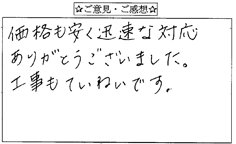 ☆ご意見・ご感想☆
価格も安く迅速な対応
ありがとうございました。
工事もていねいです。